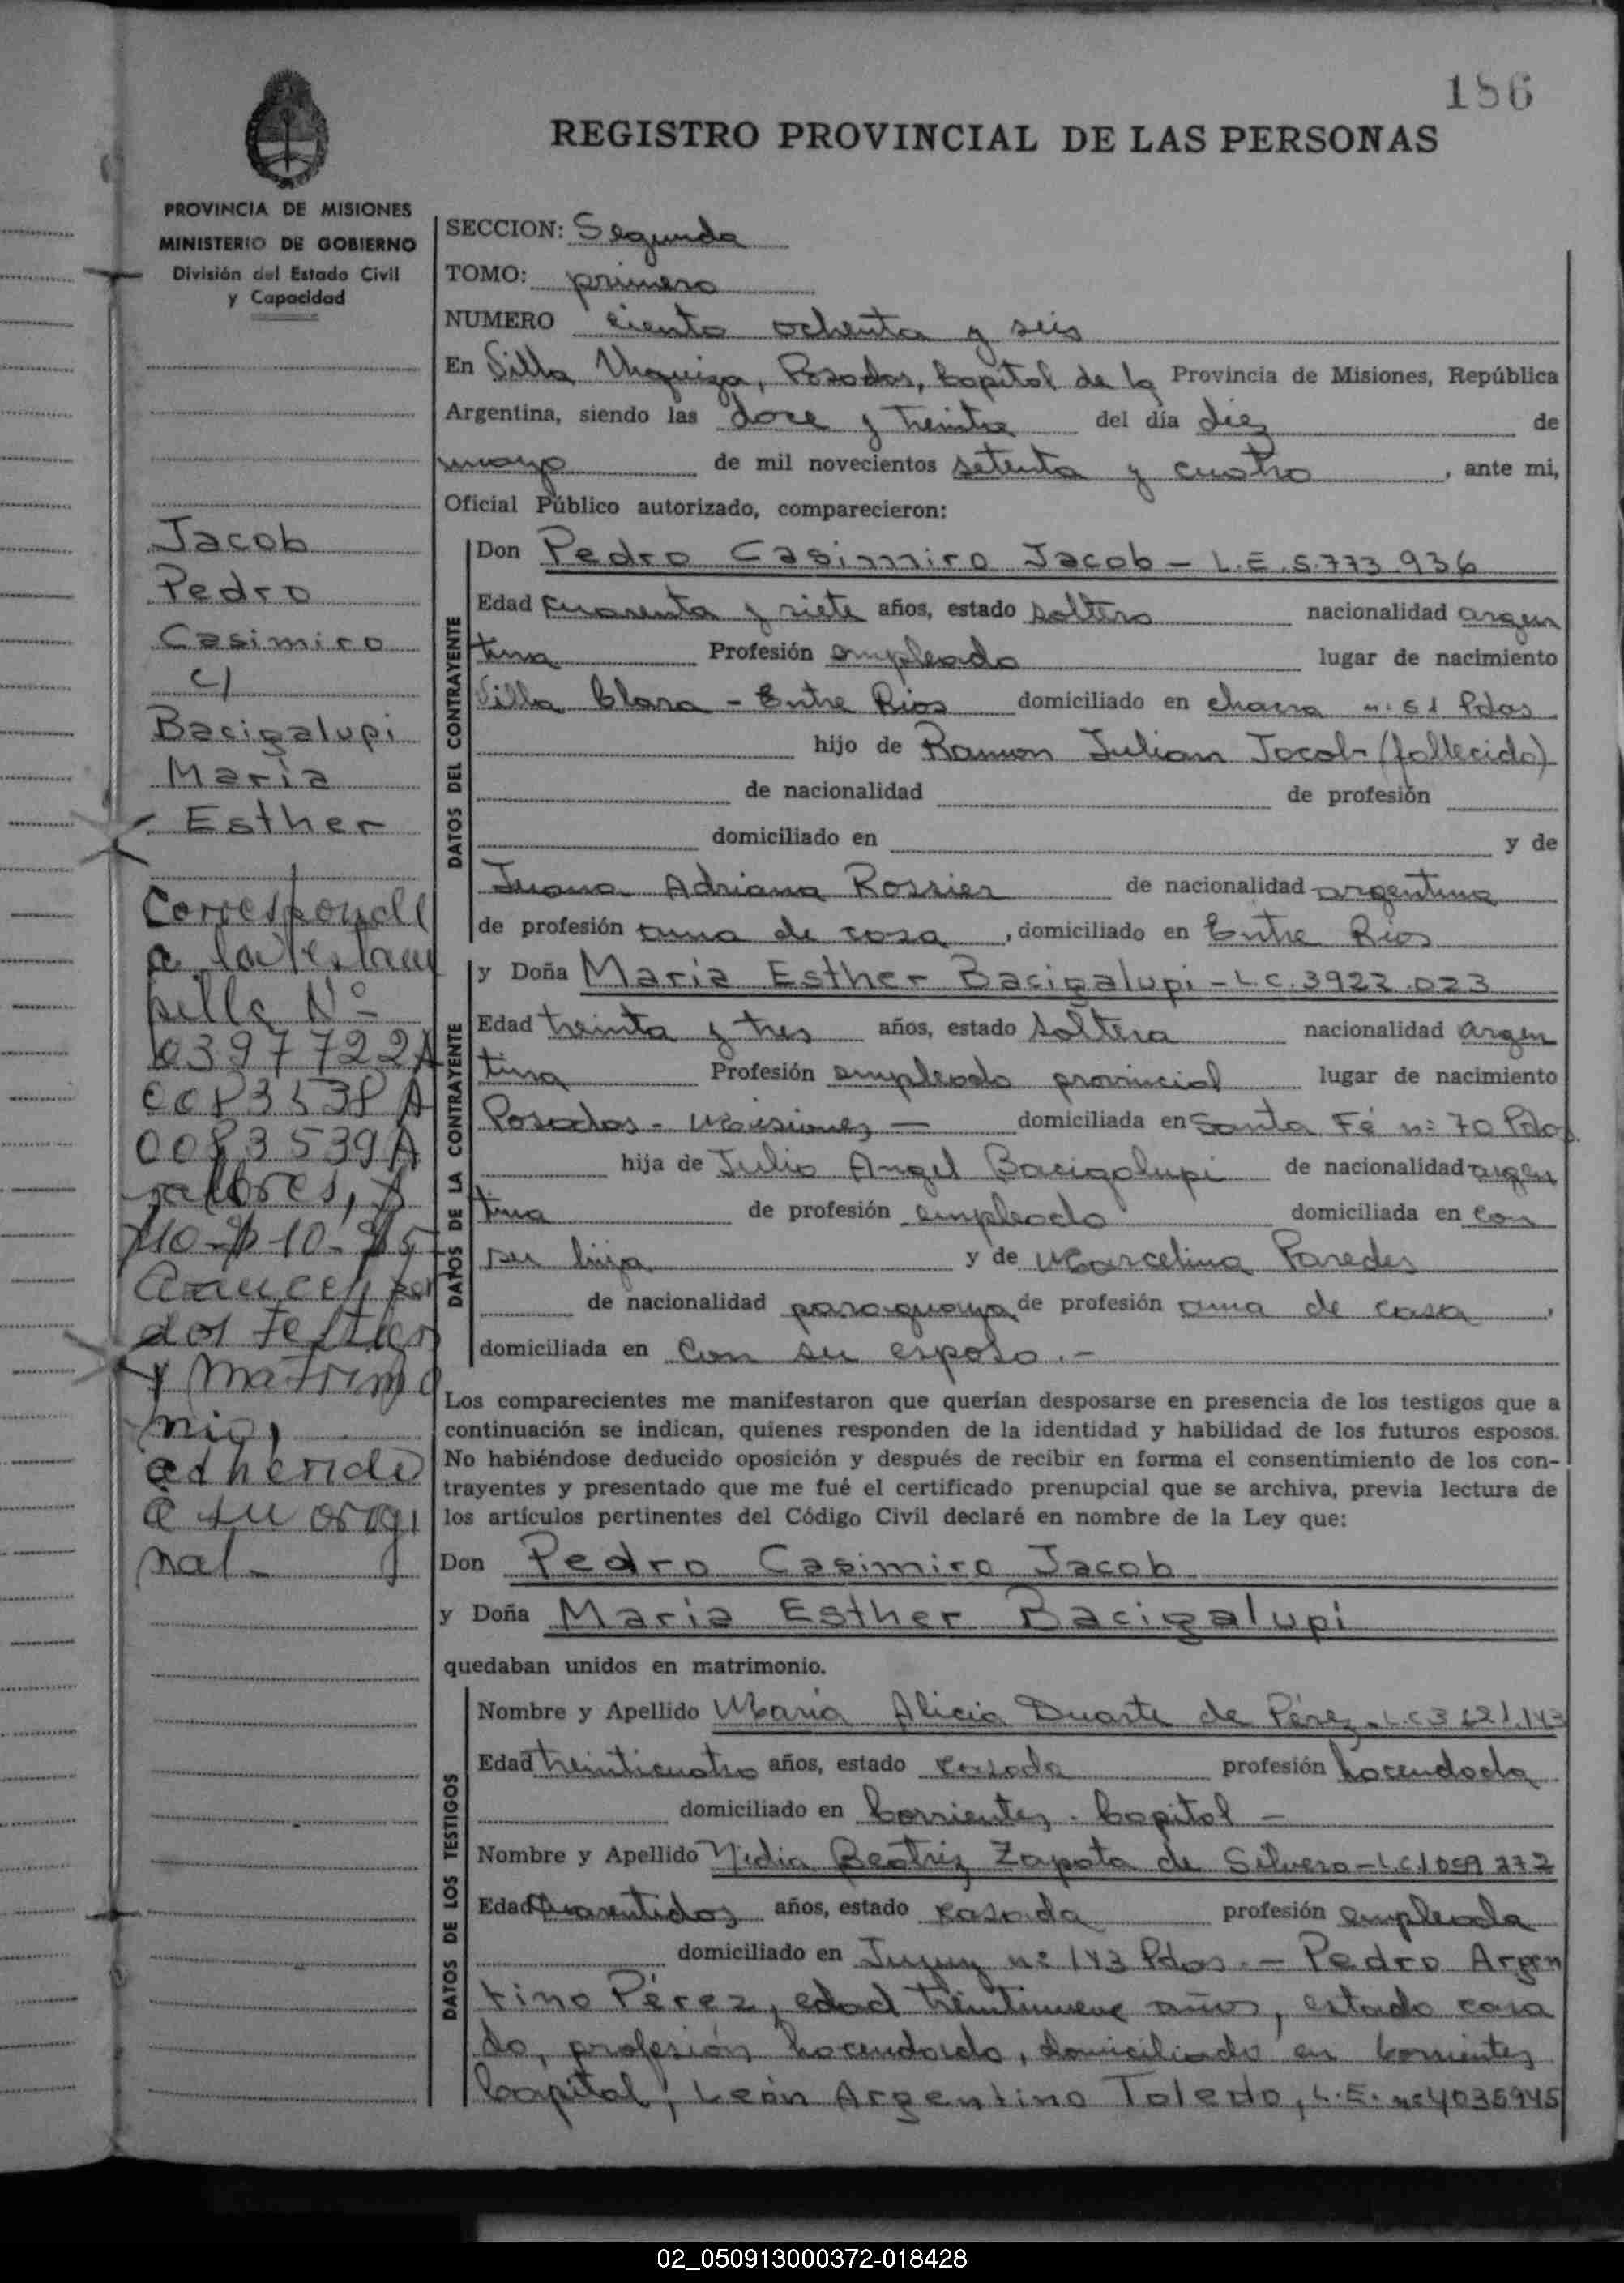 186
REGISTRO PROVINCIAL DE LAS PERSONAS
PROVINCIA DE MISIONES
MINISTERIO DE GOBIERNO
División del Estado Civil
y Capacidad
Jacob
Pedro
Casimiro
c/
Bacigalupi
María
Esther
Corresponde
a la estam
pilla Nº
0397722A
0083538A
0083539A
valores, $
110-$10-$5
Arancel por
dos testigos
y matrimo
nio,
adherido
a su origi
nal-
SECCION: Segunda
TOMO: primero
NUMERO ciento ochenta y seis
En Villa Urquiza, Posadas, Capital de la Provincia de Misiones, República
Argentina, siendo las doce y treinta del día diez de
mayo de mil novecientos setenta y cuatro, ante mi,
Oficial Público autorizado, comparecieron:
DATOS DEL CONTRAYENTE
Don Pedro Casimiro Jacob - L.E. 5.773.936
Edad cuarenta y siete años, estado soltero nacionalidad argen
tina Profesión empleado lugar de nacimiento
Villa Clara - Entre Rios domiciliado en chacra nº 51 Pdas
hijo de Ramon Julian Jacob (fallecido)
de nacionalidad de profesión
domiciliado en y de
Juana Adriana Rossier de nacionalidad argentina
de profesión ama de casa, domiciliado en Entre Rios
DATOS DE LA CONTRAYENTE
y Doña María Esther Bacigalupi - L.C. 3922.023
Edad treinta y tres años, estado soltera nacionalidad argen
tina Profesión empleada provincial lugar de nacimiento
Posadas - Misiones - domiciliada en Santa Fé nº 70 Pdas
hija de Julio Angel Bacigalupi de nacionalidad argen
tina de profesión empleado domiciliada en con
su hija y de Marcelina Paredes
de nacionalidad paraguaya de profesión ama de casa,
domiciliada en con su esposo.-
Los comparecientes me manifestaron que querían desposarse en presencia de los testigos que a
continuación se indican, quienes responden de la identidad y habilidad de los futuros esposos.
No habiéndose deducido oposición y después de recibir en forma el consentimiento de los con-
trayentes y presentado que me fué el certificado prenupcial que se archiva, previa lectura de
los artículos pertinentes del Código Civil declaré en nombre de la Ley que:
Don Pedro Casimiro Jacob
y Doña María Esther Bacigalupi
quedaban unidos en matrimonio.
DATOS DE LOS TESTIGOS
Nombre y Apellido María Alicia Duarte de Pérez - L.C 3621.143
Edad treinticuatro años, estado casada profesión hacendada
domiciliado en Corrientes - Capital -
Nombre y Apellido Nidia Beatriz Zapata de Silvero - L.C. 1059 272
Edad cuarentidos años, estado casada profesión empleada
domiciliado en Jujuy nº 143 Pdas. - Pedro Argen
tino Pérez, edad treintinueve años, estado casa
do, profesión hacendado, domiciliado en Corrientes
Capital; León Argentino Toledo, L.E. nº 4035945
02_050913000372-018428